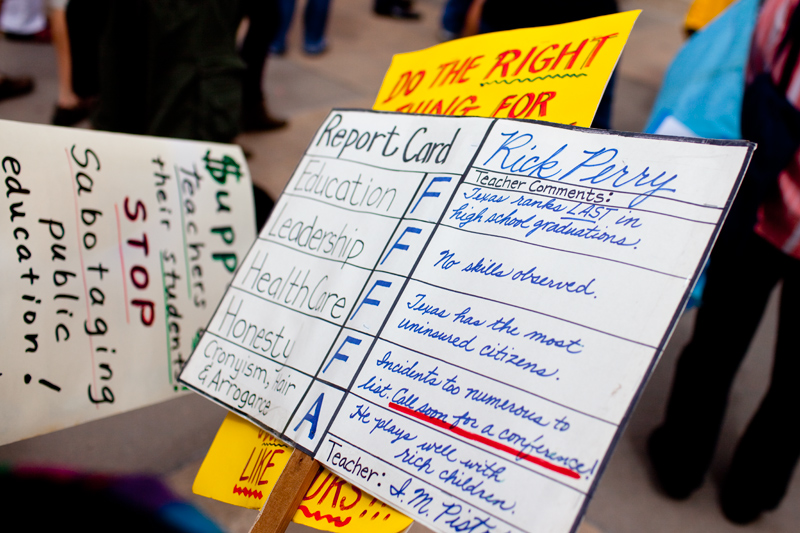 DO THE RIGHT
THING FOR
LIKE
Report Card
Rick Perry
Teacher Comments:
Education
F
Texas ranks LAST in
high school graduations.
Leadership
F
No skills observed.
HealthCare
F
Texas has the most
uninsured citizens.
Honesty
F
Incidents too numerous to
list. Call soon for a conference!
Cronyism, Hair
& Arrogance
A
He plays well with
rich children.
Teacher: I. M.
$upp
teachers
their students
STOP
Sabotaging
public
education!